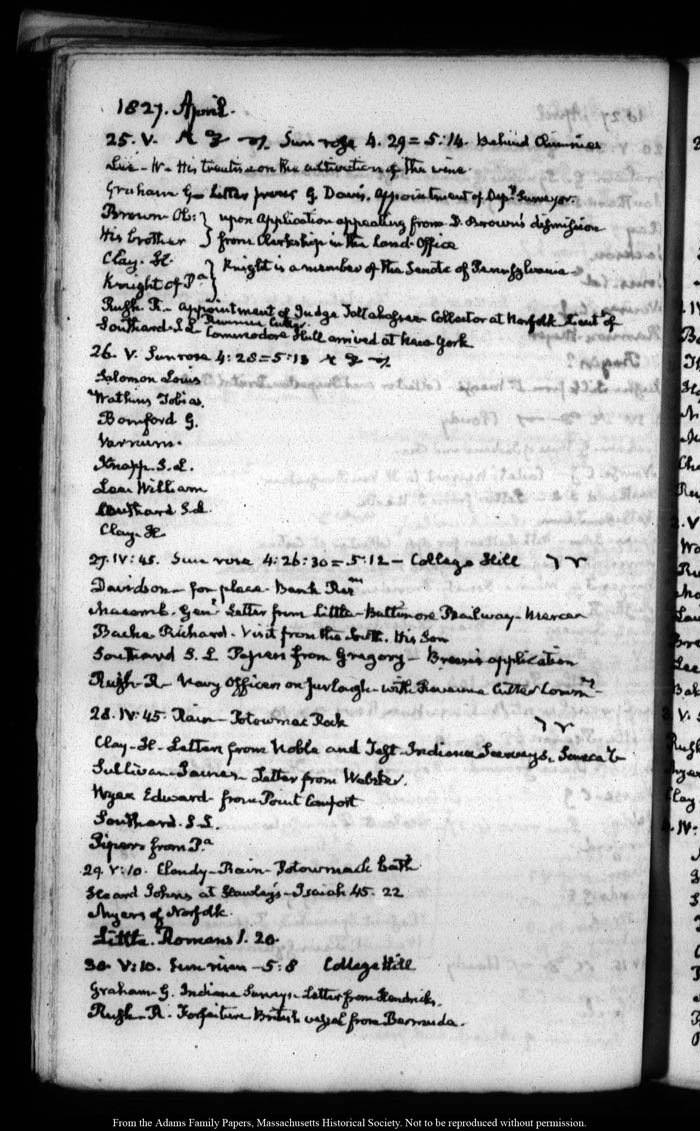 1827. April.
25. V. Sun rose 4. 29 = 5:14. Behind Chimnies
Lee - W - His treatise on the cultivation of the vine.
Graham G - Letter from G. Davis. Appointment of Depy Surveyor.
Brown Ob: } upon Application appealing from D. Brown's dismission
His brother } from Clerkship in the Land Office
Clay. H. } Knight is a member of the Senate of Pennsylvania
Knight of Pa }
Rush R - Appointment of Judge Collector at Norfolk Lieut of Revenue Cutter
Southard S. L Commodore Hull arrived at New York
26. V. Sun rose 4: 28 = 5:13
Salomon Louis
Watkins Tobias.
Bomford G.
Varnum.
Knapp. S. L.
Lee William
Southard S. L
Clay. H
27. IV: 45. Sun rose 4: 26: 30 = 5: 12 - College Hill
Davidson - for place - Bank
Macomb. Genl Letter from Little - Baltimore Railway - Mercer
Bache Richard - Visit from the South. His Son
Southard S. L Papers from Gregory - application
Rush - R - Navy Officers on furlough - with Revenue Cutter Commns -
28. IV: 45. Rain - Potowmac Rock
Clay - H - Letters from Noble and Taft - Indiana Surveys. Seneca
Sullivan - James - Letter from Webster.
Wyer Edward from Point Comfort
Southard. S. L.
Pipers from Pa
29. V: 10. Cloudy - Rain - Potowmack bath
Heard Johns at Hawley's - Isaiah 45. 22
Myers of Norfolk.
Little. Romans 1. 20.
30. V: 10. Sun risen - 5: 8 College Hill
Graham - G. Indiana Surveys - Letter from Hendricks.
Rush - R. - Forfeiture British vessel from Bermuda.
From the Adams Family Papers, Massachusetts Historical Society. Not to be reproduced without permission.